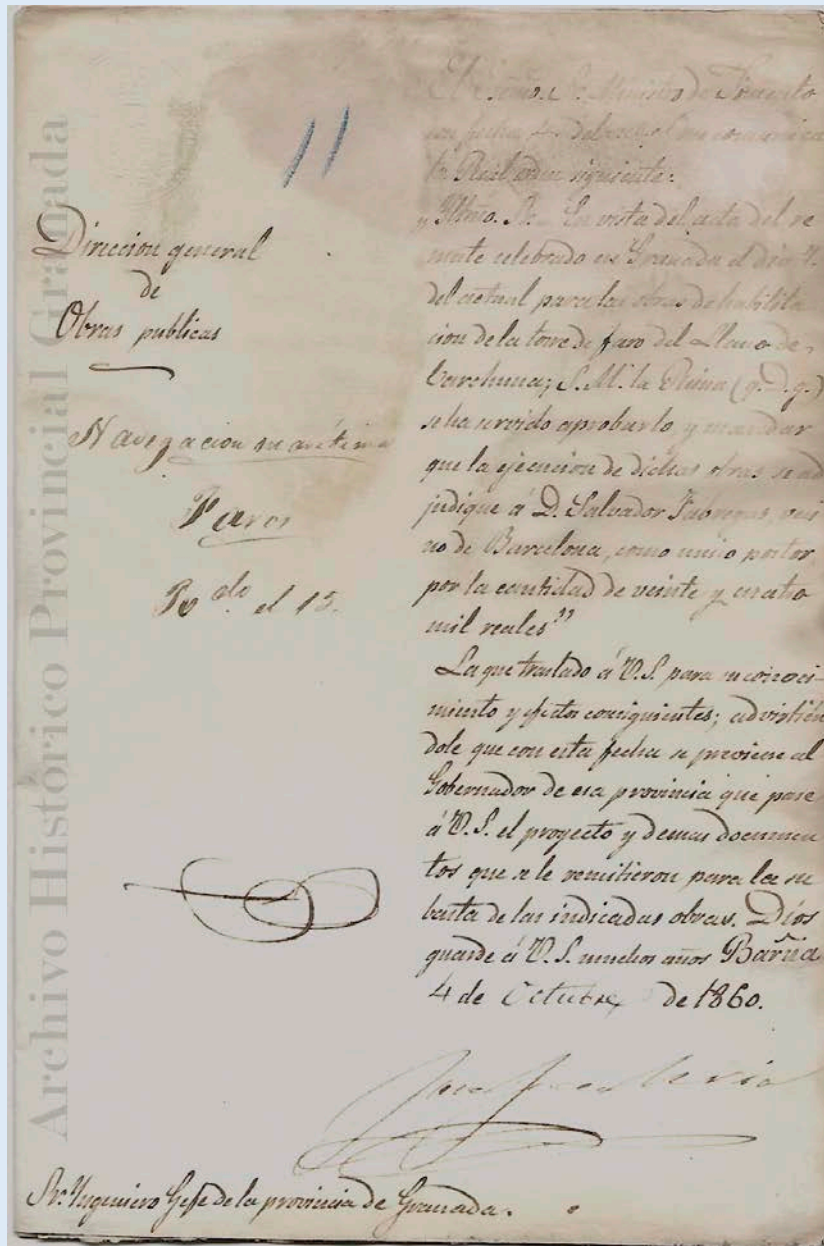 11
Direccion general
de
Obras publicas
Navegacion maritima
Faros
R.do el 15.
El Exmo. Sr. Ministro de Fomento
con fecha de me comunica
la Real orden siguiente:
"Iltmo. Sr. En vista del acta del re
mate celebrado en Granada el dia 7.
del actual para las obras de habilita
cion de la torre de faro del Llano de
Carchuna; S. M. la Reina (q. D. g.)
se ha servido aprobarlo y mandar
que la ejecucion de dichas obras se ad
judique á D. Salvador Fabregas, veci
no de Barcelona, como unico postor
por la cantidad de veinte y cuatro
mil reales"
La que traslado á V. S. para su conoci-
miento y efectos consiguientes; advirtien
dole que con esta fecha se previene al
Gobernador de esa provincia que pase
á V. S. el proyecto y demas documen
tos que se le remitieron para la su
basta de las indicadas obras. Dios
guarde á V. S. muchos años
4 de Octubre de 1860.
Sr. Ingeniero Gefe de la provincia de Granada.
Archivo Histórico Provincial Granada